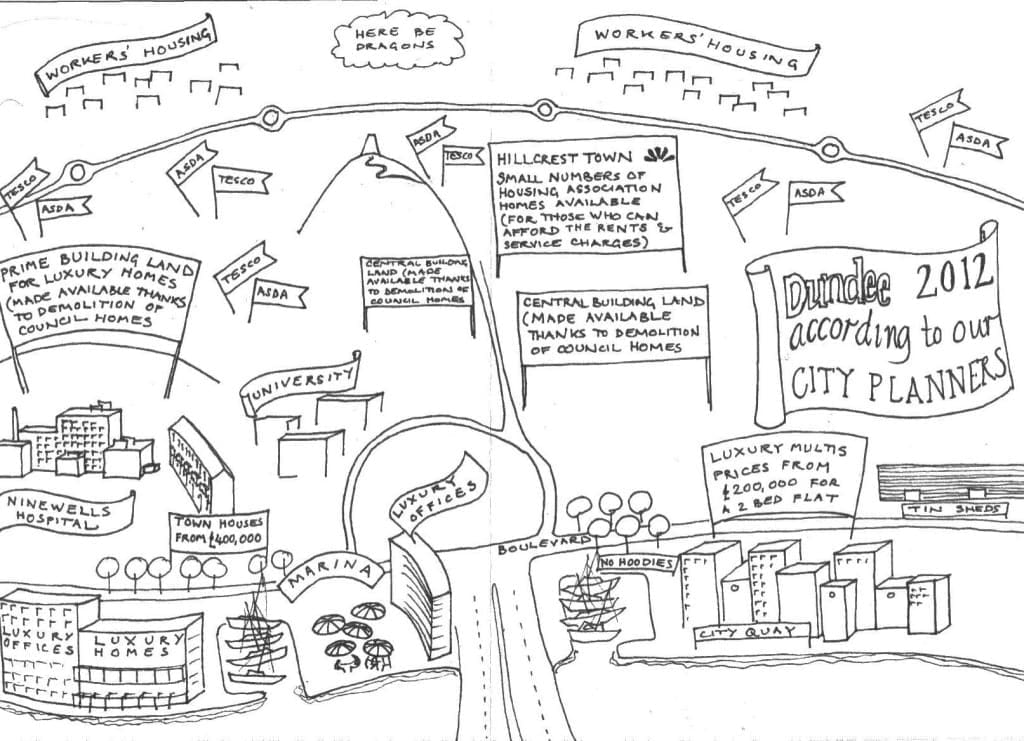 WORKERS' HOUSING
HERE BE
DRAGONS
WORKERS' HOUSING
TESCO
ASDA
ASDA
TESCO
ASDA
TESCO
TESCO
ASDA
TESCO
ASDA
TESCO
ASDA
HILLCREST TOWN
SMALL NUMBERS OF
HOUSING ASSOCIATION
HOMES AVAILABLE
(FOR THOSE WHO CAN
AFFORD THE RENTS &
SERVICE CHARGES)
PRIME BUILDING LAND
FOR LUXURY HOMES
(MADE AVAILABLE THANKS
TO DEMOLITION OF
COUNCIL HOMES
CENTRAL BUILDING
LAND (MADE
AVAILABLE THANKS
TO DEMOLITION OF
COUNCIL HOMES
CENTRAL BUILDING LAND
(MADE AVAILABLE
THANKS TO DEMOLITION
OF COUNCIL HOMES
Dundee 2012
according to our
CITY PLANNERS
UNIVERSITY
LUXURY MULTIS
PRICES FROM
£200,000 FOR
A 2 BED FLAT
TIN SHEDS
NINEWELLS
HOSPITAL
LUXURY
OFFICES
TOWN HOUSES
FROM £400,000
BOULEVARD
NO HOODIES
MARINA
LUXURY
OFFICES
LUXURY
HOMES
CITY QUAY